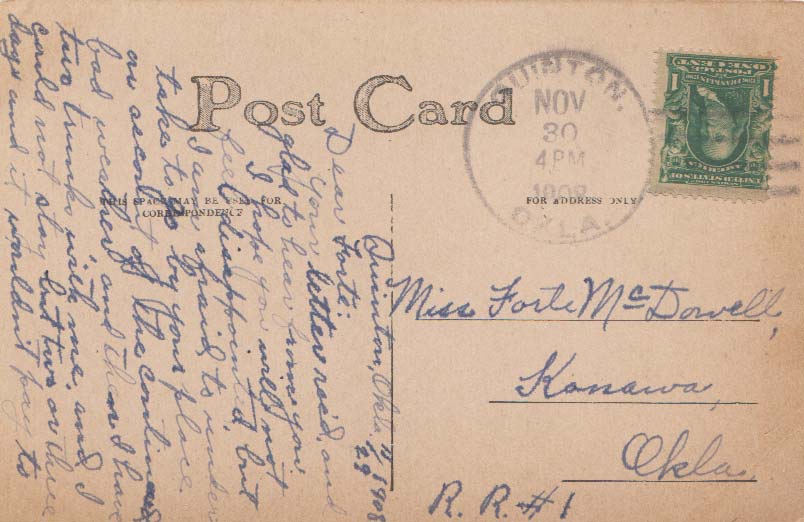 Post Card
THIS SPACE MAY BE USED FOR
CORRESPONDENCE
FOR ADDRESS ONLY
QUINTON,
NOV
30
4 PM
1908
OKLA.
ONE CENT
1 1
POSTAGE
UNITED STATES OF
AMERICA
Quinton, Okla. 11/29 1908
Dear Forte:
Your letter rec'd, and
glad to hear from you.
I hope you will not
feel disappointed but
I am afraid to under
take to go by your place.
on account of the continued
bad weather and then I have
two trunks with me, and I
could not stay but two or three
days and it wouldn't pay to
Miss Forte McDowell,
Konawa,
Okla.
R. R. #1